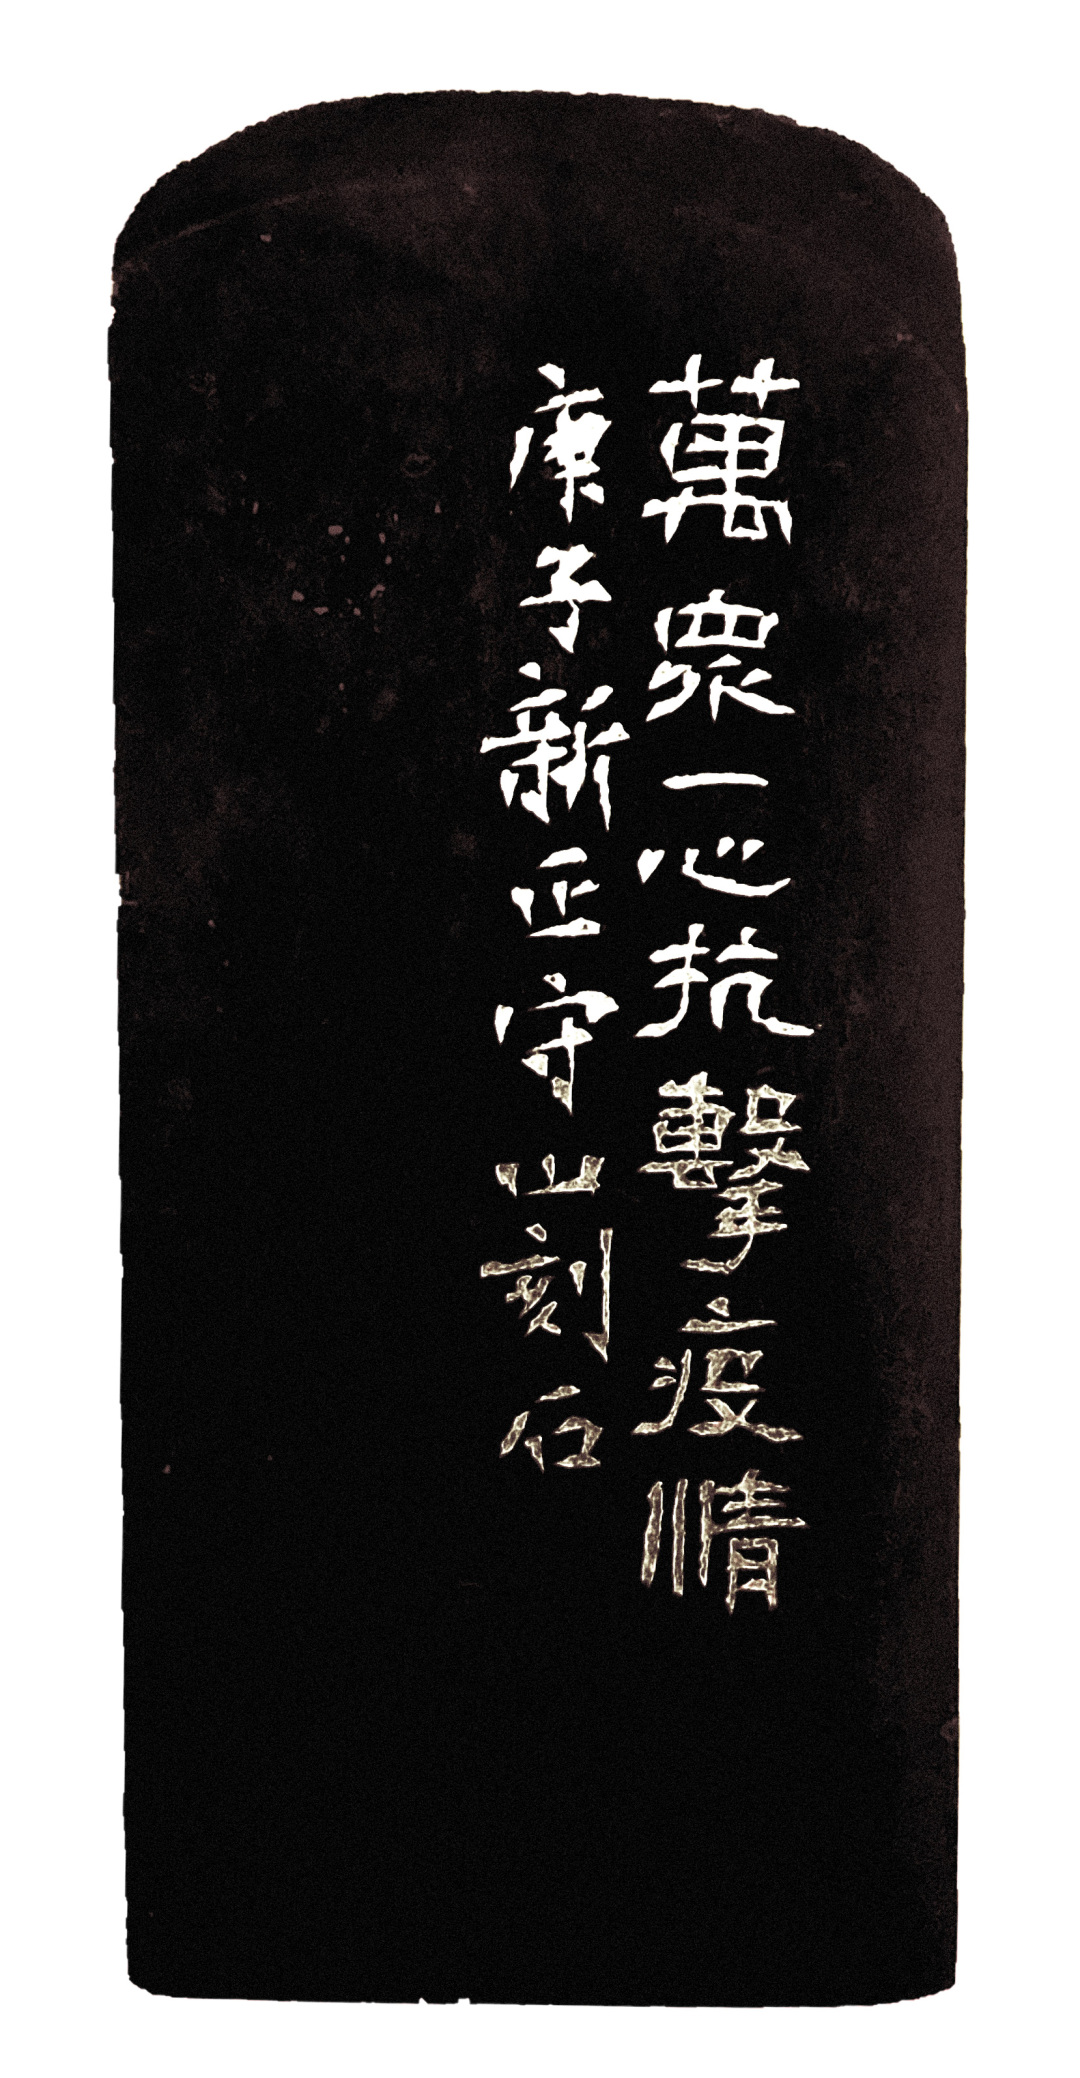 萬眾一心抗擊疫情
庚子新正守山刻石